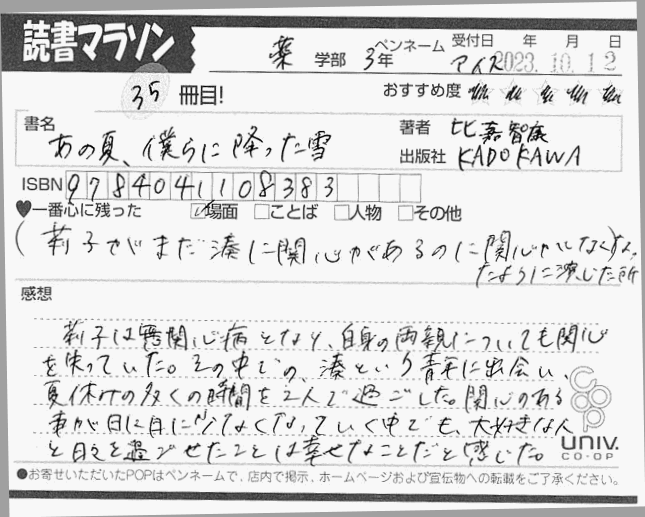 読書マラソン
薬 学部 3年 ペンネーム アイス 受付日 年 月 日
2023.10.12
35 冊目!
おすすめ度
書名 あの夏、僕らに降った雪
著者 比嘉智康
出版社 KADOKAWA
ISBN 9784041108383
♥一番心に残った ☑場面 □ことば □人物 □その他
(莉子がまだ湊に関心があるのに関心がなくなっ
たように演じた所
感想
莉子は無関心病となり、自身の両親についても関心
を失っていた。その中での、湊という青年に出会い、
夏休みの多くの時間を2人で過ごした。関心のある
事が日に日に少なくなっていく中でも、大好きな人
と日々を過ごせたことは幸せなことだと感じた。
UNIV.
CO・OP
●お寄せいただいたPOPはペンネームで、店内で掲示、ホームページおよび宣伝物への転載をご了承ください。